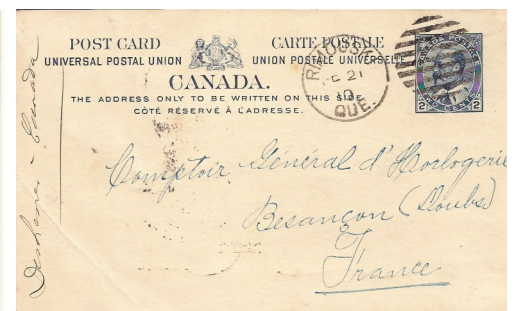 POST CARD CARTE POSTALE
UNIVERSAL POSTAL UNION UNION POSTALE UNIVERSELLE
CANADA.
THE ADDRESS ONLY TO BE WRITTEN ON THIS SIDE
CÔTÉ RÉSERVÉ À L'ADRESSE.
RIMOUSKI
21
10
QUE.
CANADA POSTAGE
2 2
Comptoir Général d'Horlogerie
Besançon (Doubs)
France
Canada